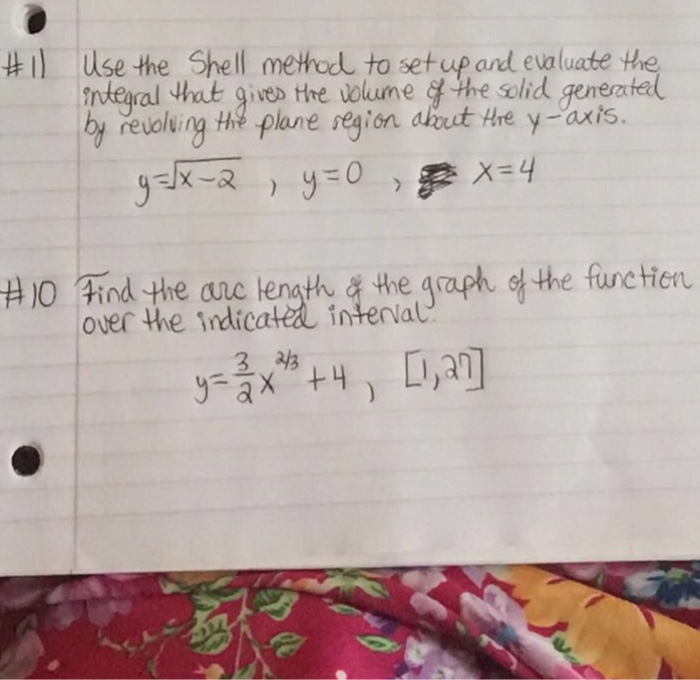 #11 Use the Shell method to set up and evaluate the
integral that gives the volume of the solid generated
by revolving the plane region about the y-axis.
y=√x-2 , y=0 , x=4
#10 Find the arc length of the graph of the function
over the indicated interval.
y=3/2 x^2/3 +4, [1,27]